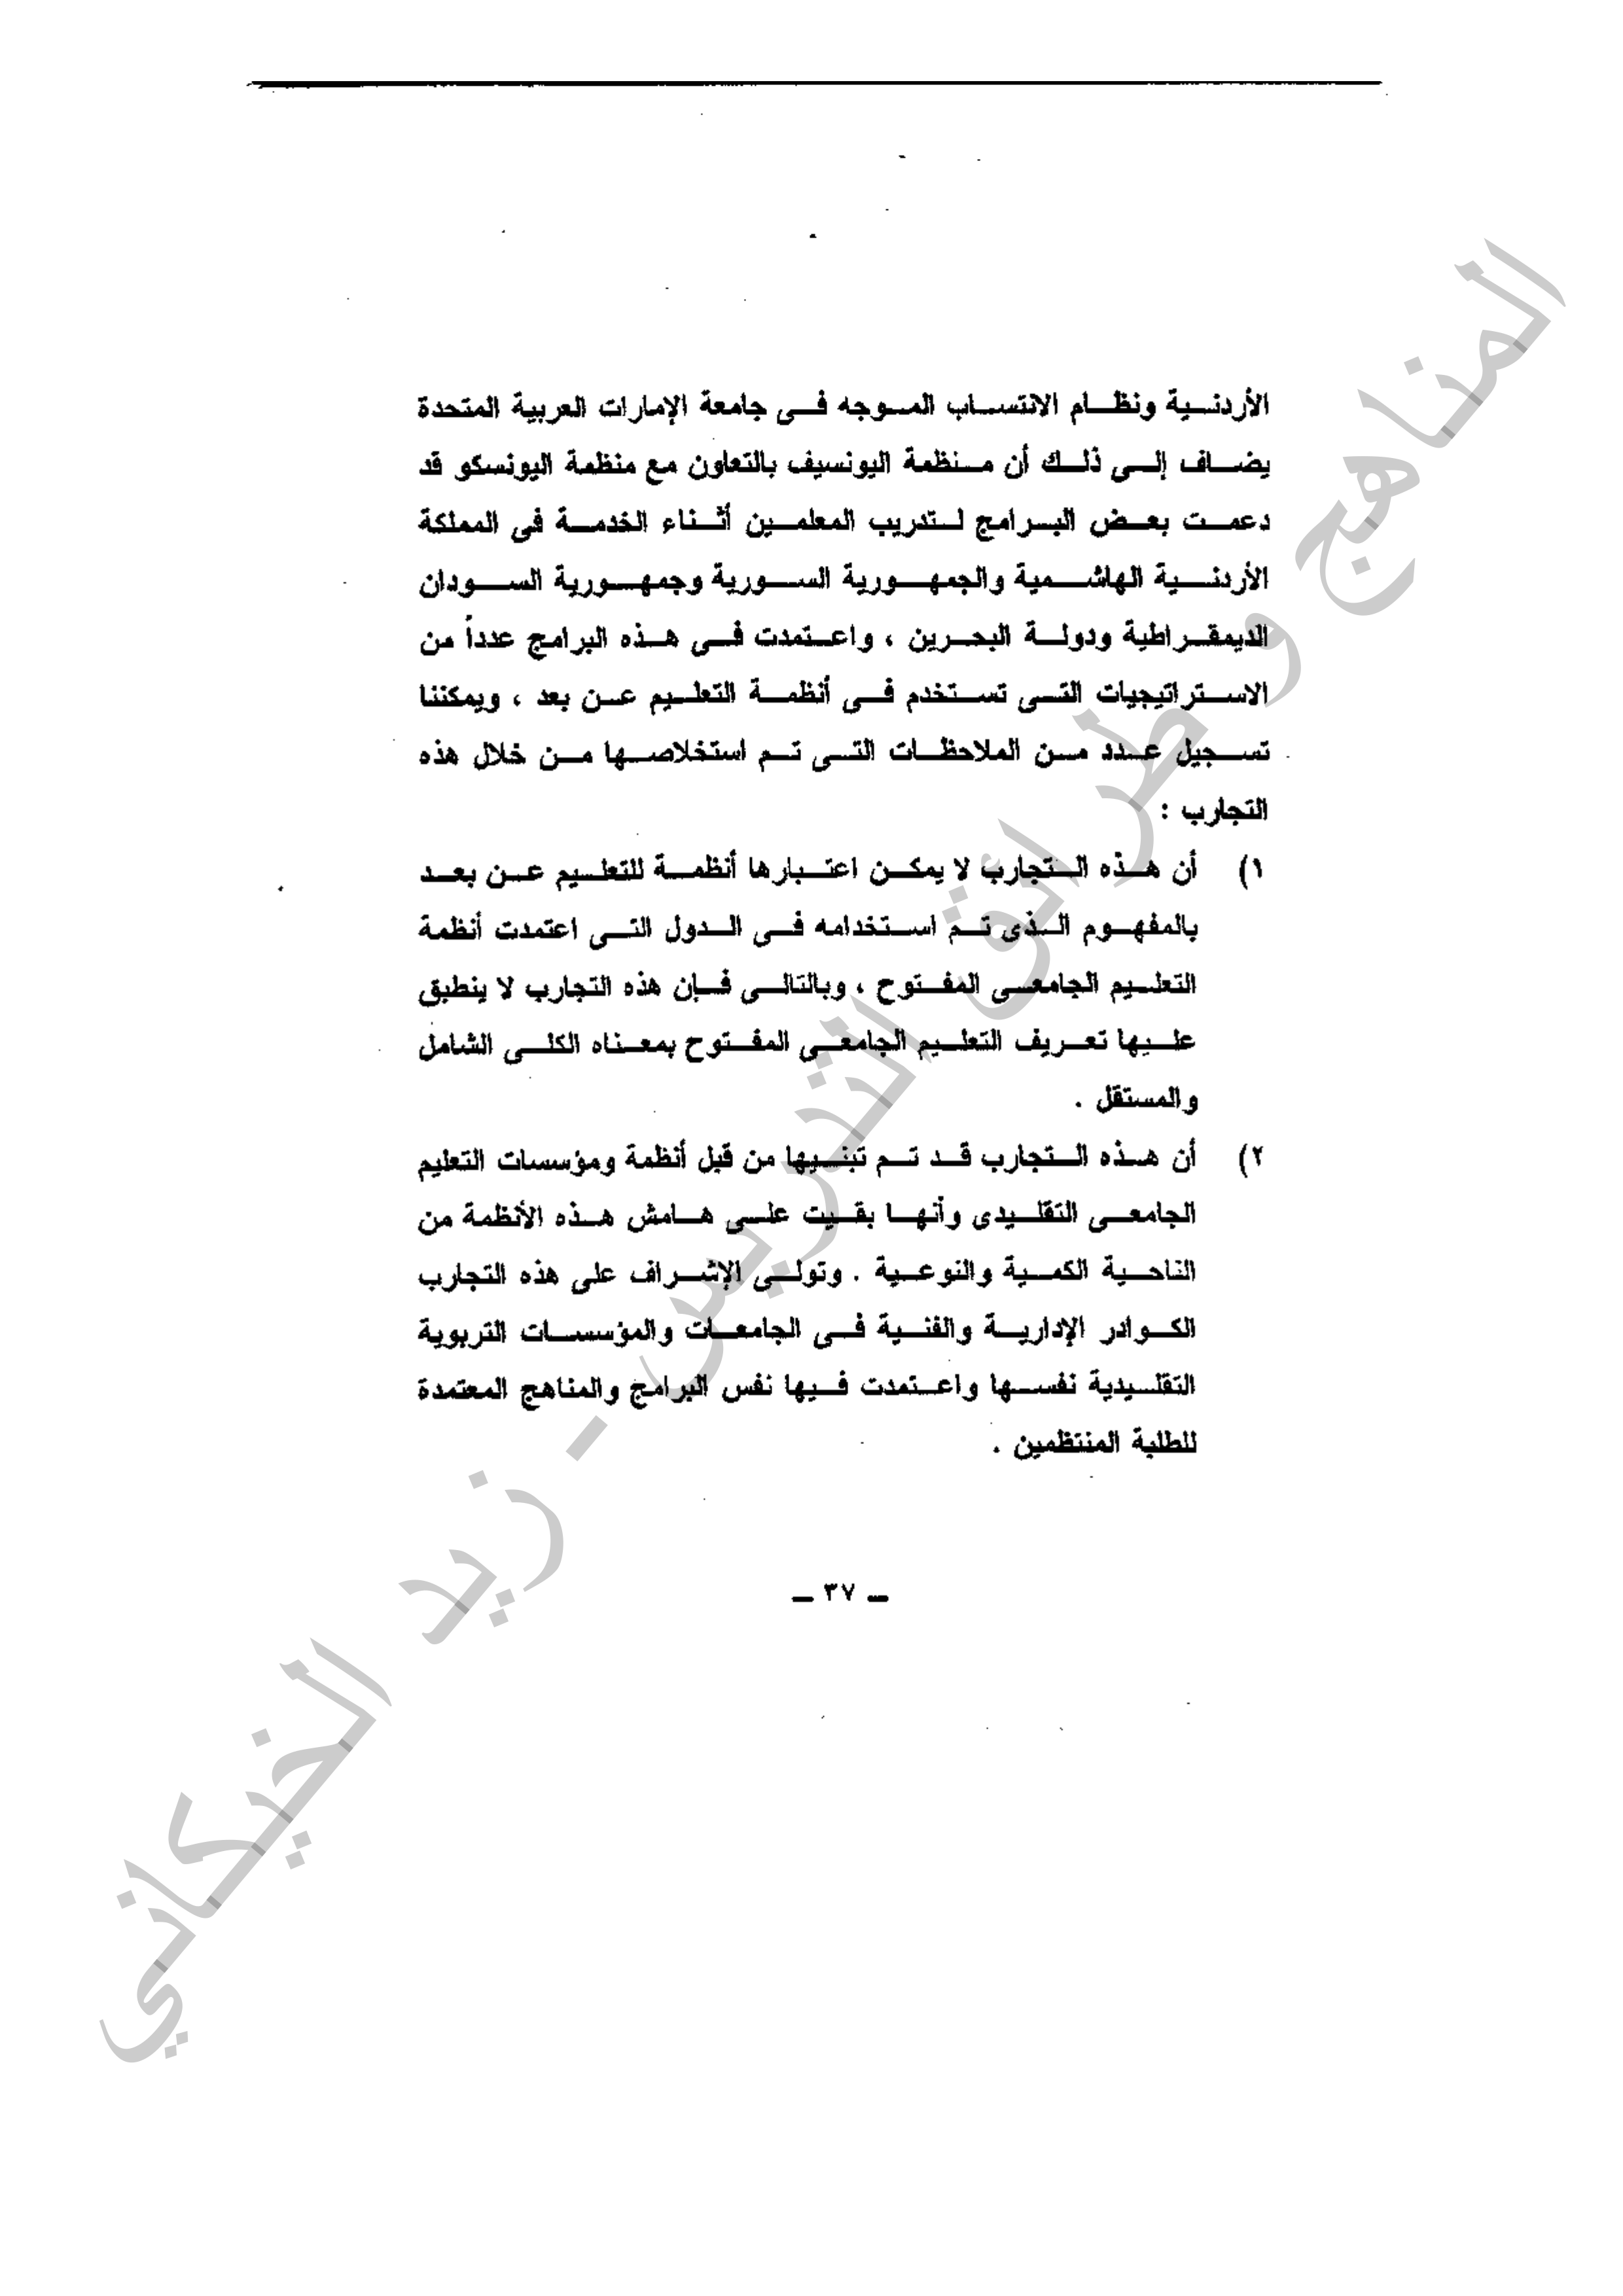 الأردنية ونظام الانتساب الموجه فى جامعة الإمارات العربية المتحدة
يضاف إلى ذلك أن منظمة اليونسيف بالتعاون مع منظمة اليونسكو قد
دعمت بعض البرامج لتدريب المعلمين أثناء الخدمة فى المملكة
الأردنية الهاشمية والجمهورية السورية وجمهورية السودان
الديمقراطية ودولة البحرين ، واعتمدت فى هذه البرامج عدداً من
الاستراتيجيات التى تستخدم فى أنظمة التعليم عن بعد ، ويمكننا
تسجيل عدد من الملاحظات التى تم استخلاصها من خلال هذه
التجارب :
١) أن هذه التجارب لا يمكن اعتبارها أنظمة للتعليم عن بعد
بالمفهوم الذى تم استخدامه فى الدول التى اعتمدت أنظمة
التعليم الجامعى المفتوح ، وبالتالى فإن هذه التجارب لا ينطبق
عليها تعريف التعليم الجامعى المفتوح بمعناه الكلى الشامل
والمستقل .
٢) أن هذه التجارب قد تم تبنيها من قبل أنظمة ومؤسسات التعليم
الجامعى التقليدى وأنها بقيت على هامش هذه الأنظمة من
الناحية الكمية والنوعية . وتولى الإشراف على هذه التجارب
الكوادر الإدارية والفنية فى الجامعات والمؤسسات التربوية
التقليدية نفسها واعتمدت فيها نفس البرامج والمناهج المعتمدة
للطلبة المنتظمين .
ـ ٣٧ ـ
المناهج وطرائق التدريس - زيد الخيكاني